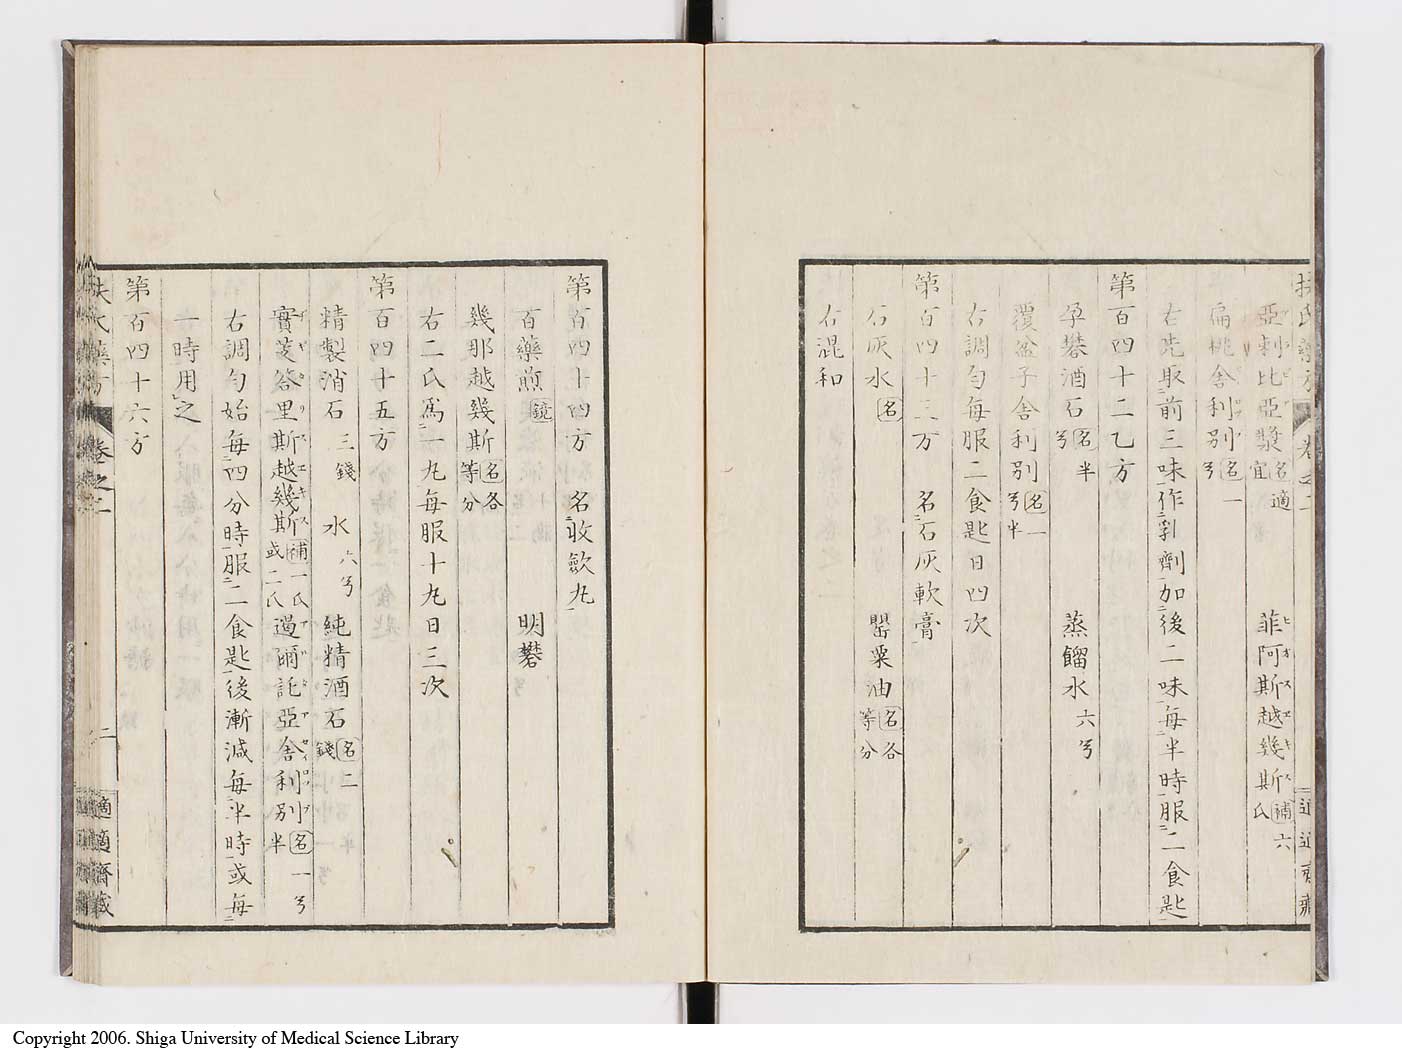 亞剌比亞漿 名適宜 菲阿斯越幾斯 補六氏
ヒヲスエキス
扁桃舎利別 名一ㄢ
右先取前三味作乳劑加後二味毎半時服二食匙
第百四十二乙方
孕礬酒石 名半ㄢ 蒸餾水 六ㄢ
覆盆子舎利別 名一ㄢ半
右調勻毎服二食匙日四次
第百四十三方 名石灰軟膏
石灰水 名 罌粟油 名各等分
右混和
第百四十四方 名收歛丸
百藥煎 鏡 明礬
幾那越幾斯 名各等分
右二氏爲一丸毎服十丸日三次
第百四十五方
精製消石 三錢 水 六ㄢ 純精酒石 名二錢
實芰答里斯越幾斯 補一氏或二氏 過爾託亞舎利別 名一ㄢ半
右調勻始毎四分時服二食匙後漸減毎半時或毎
一時用之
第百四十六方
扶氏藥方 卷之二 二 適適齋藏
Copyright 2006. Shiga University of Medical Science Library